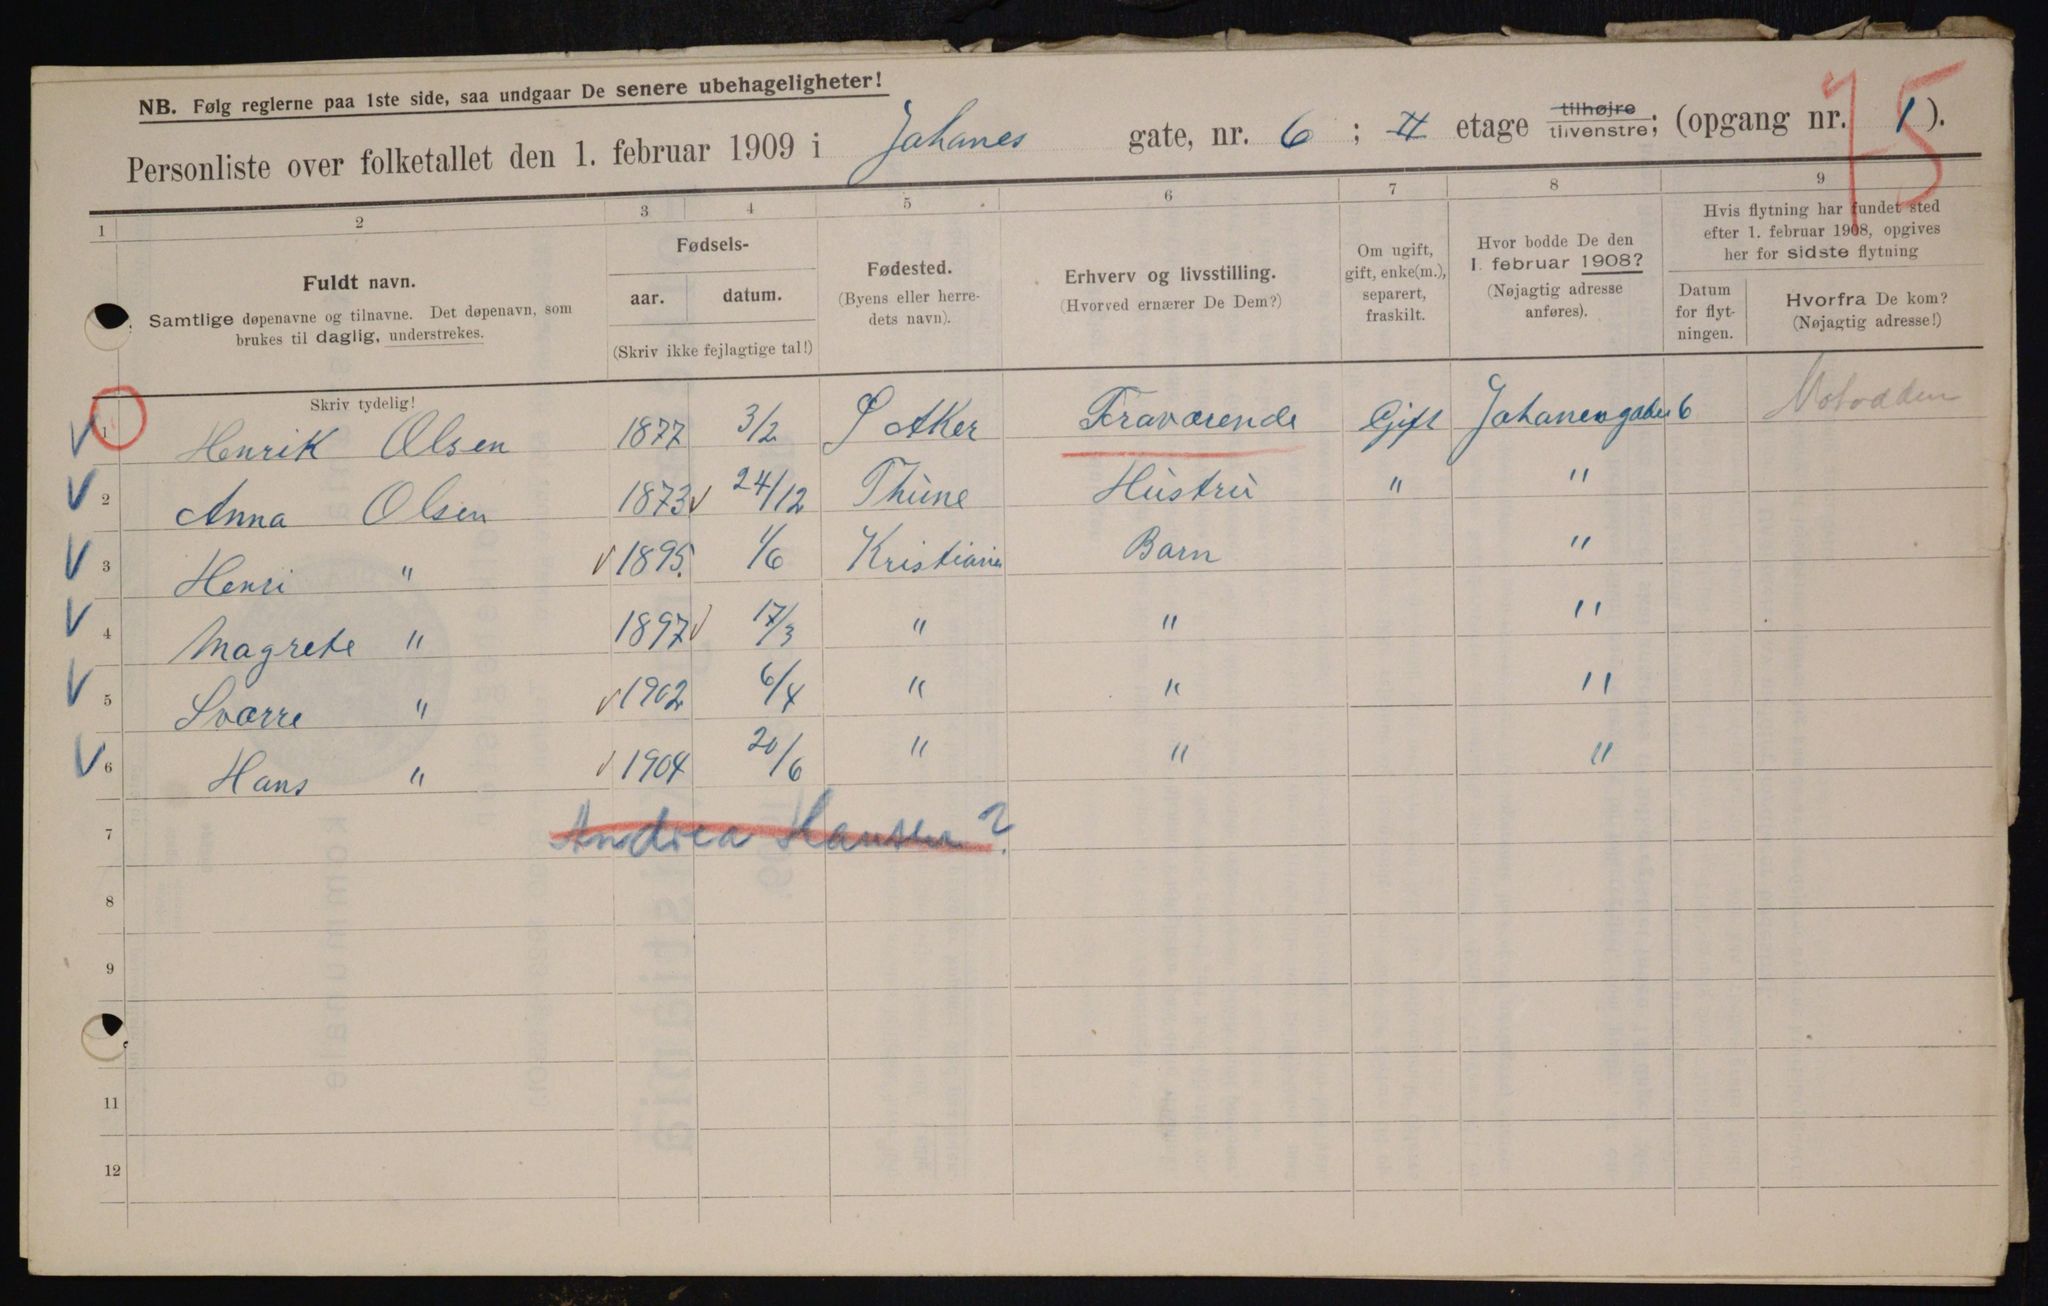 NB. Følg reglerne paa 1ste side, saa undgaar De senere ubehageligheter!
75
Personliste over folketallet den 1. februar 1909 i Johanes gate, nr. 6 ; II etage tilhøjre tilvenstre; (opgang nr. 1 ).
1 2 3 4 5 6 7 8 9
Fuldt navn.
Samtlige døpenavne og tilnavne. Det døpenavn, som
brukes til daglig, understrekes.
Skriv tydelig!
Fødsels-
aar. datum.
(Skriv ikke fejlagtige tal!)
Fødested.
(Byens eller herre-
dets navn).
Erhverv og livsstilling.
(Hvorved ernærer De Dem?)
Om ugift,
gift, enke(m.),
separert,
fraskilt.
Hvor bodde De den
1. februar 1908?
(Nøjagtig adresse
anføres).
Hvis flytning har fundet sted
efter 1. februar 1908, opgives
her for sidste flytning
Datum
for flyt-
ningen.
Hvorfra De kom?
(Nøjagtig adresse!)
1 Henrik Olsen 1877 3/2 Ø Aker Fraværende Gift Johanesgaten 6 Notodden
2 Anna Olsen 1873 24/12 Thune Hustru " "
3 Henri " 1895. 1/6 Kristiania Barn "
4 Magrete " 1897 17/3 " " "
5 Sværre " 1902 6/4 " " "
6 Hans " 1904 20/6 " " "
7 Andrea Hansen?
8
9
11
12